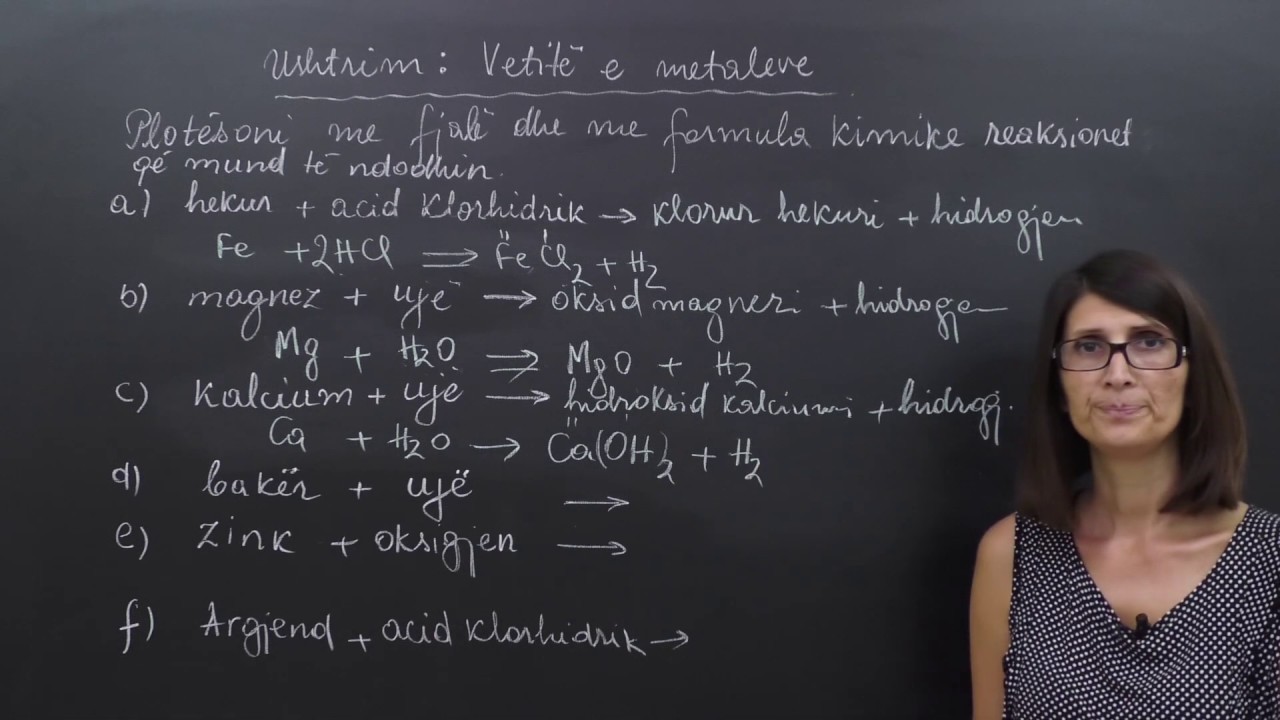 Ushtrim: Vetitë e metaleve
Plotësoni me fjalë dhe me formula kimike reaksionet
që mund të ndodhin.
a) hekur + acid klorhidrik → klorur hekuri + hidrogjen
Fe + 2HCl ⇒ FeCl₂ + H₂
b) magnez + ujë → oksid magnezi + hidrogjen
Mg + H₂O ⇒ MgO + H₂
c) kalcium + ujë → hidroksid kalciumi + hidrogj.
Ca + H₂O → Ca(OH)₂ + H₂
d) bakër + ujë →
e) zink + oksigjen →
f) Argjend + acid klorhidrik →